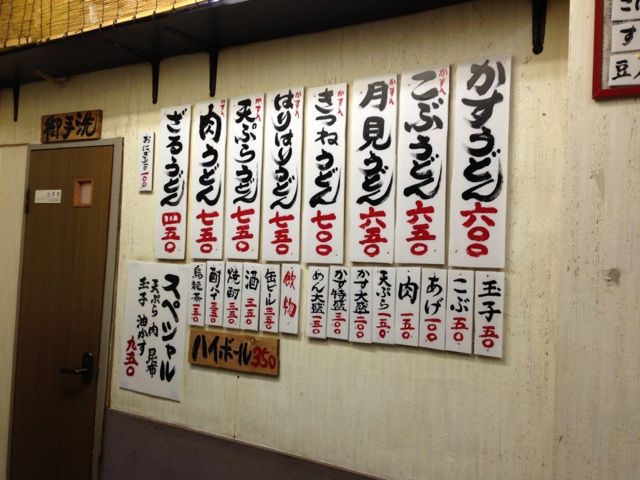 かすうどん 六〇〇
かす入 こぶうどん 六五〇
かす入 月見うどん 六五〇
かす入 きつねうどん 七〇〇
かす入 はりはりうどん 七五〇
かす入 天ぷらうどん 七五〇
かす入 肉うどん 七五〇
ざるうどん 四五〇
おにぎり 一〇〇
御手洗
玉子 五〇
こぶ 五〇
あげ 一〇〇
肉 一五〇
天ぷら 一五〇
かす大盛 二〇〇
かす特盛 三〇〇
めん大盛 一五〇
飲物
缶ビール 三五〇
酒 三五〇
焼酎 三五〇
酎ハイ 三五〇
烏龍茶 一五〇
スペシャル
天ぷら 肉 昆布
玉子 油かす
九五〇
ハイボール 350